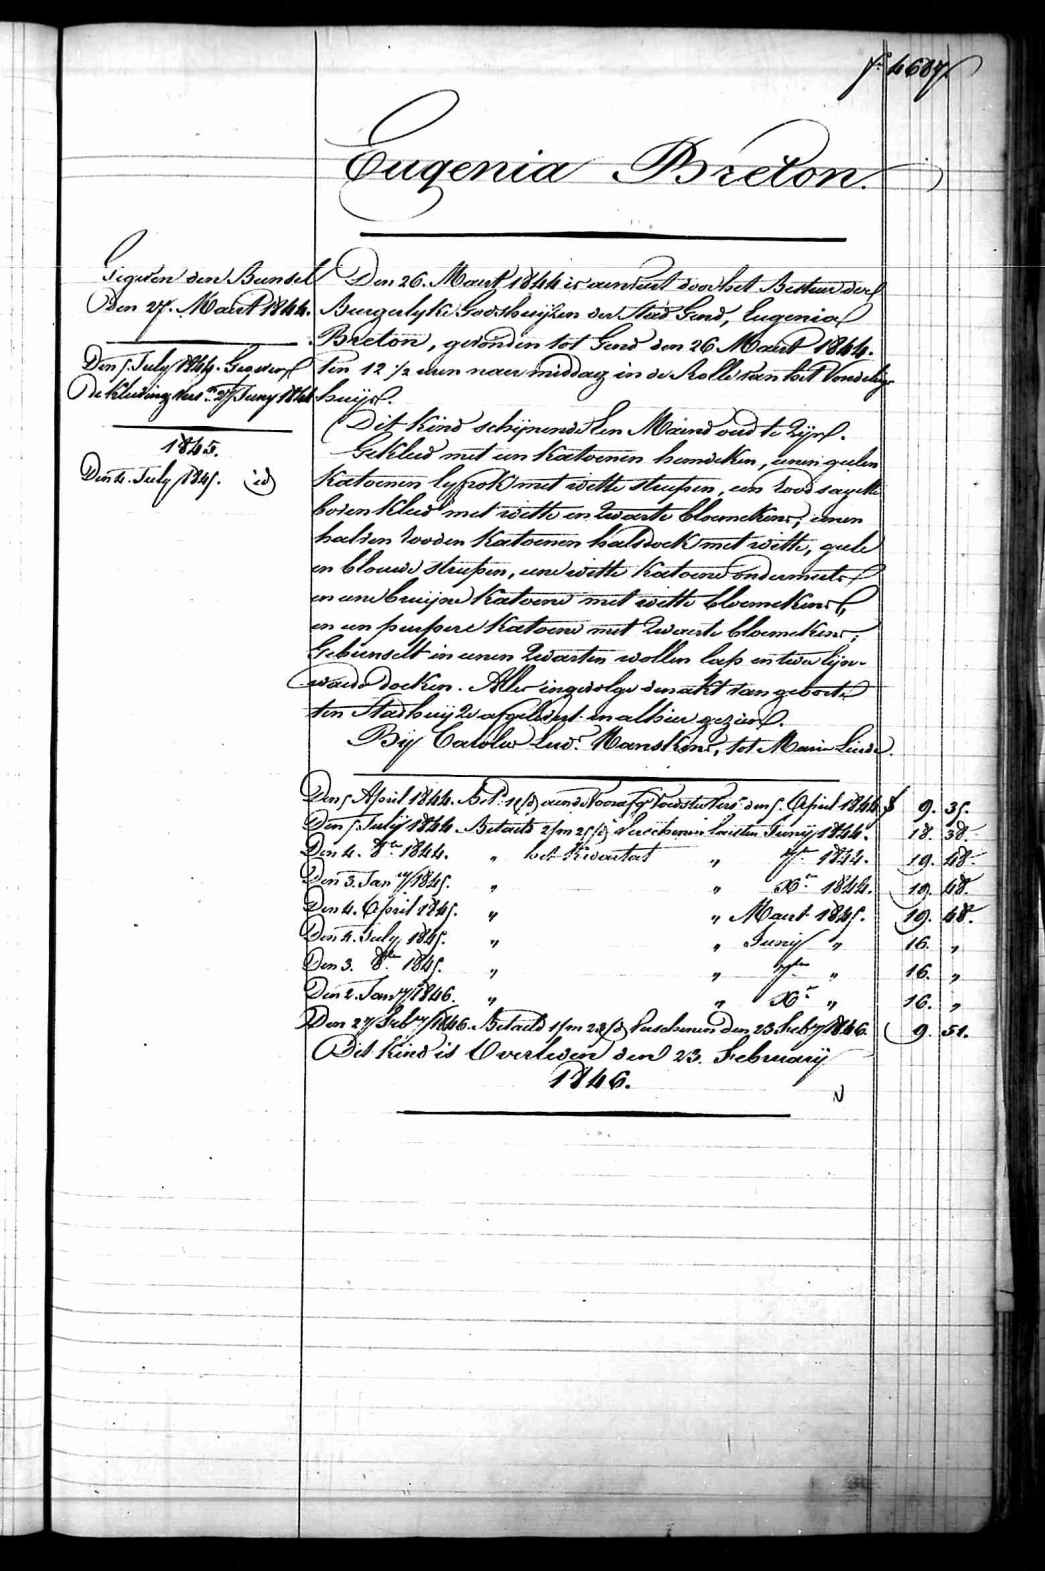 f.º 4687.
Eugenia Breton.
Gegeven den Bunsel
Den 27. Maart 1844.
Den 5. July 1844. Gegeven
De kleeding vers.n 27 Juny 1844
1845.
Den 4. July 1845. id
Den 26. Maart 1844 is aenveird door het Bestuer der
Burgerlyke Godshuyzen der Stad Gend, Eugenia
Breton, gevonden tot Gend den 26 Maart 1844.
Ten 12 1/2 uren naer middag in de Rolle van het Vondeling
huys.
Dit Kind schynende Een Maend oud te Zyn.
Gekleed met een Katoenen hemdeken, eenen geelen
Katoenen lyfrok met witte streepen, een rood sayette
boven Kleed met witte en Zwarte bloemekens, eenen
halven rooden Katoenen halsdoek met witte, geele
en blauwe streepen, eene witte Katoene ondermuts
en eene bruyne Katoene met witte bloemekens,
en een purpere Katoene met Zwarte bloemekens;
Gebunselt in eenen Zwarten wollen lap en twee lyn-
waede doeken. Alles ingevolge den akt van geboorte
ten Stadhuyze afgeleverd en alhier gezien.
By Carolus Lud.s Manskens, tot Maria Lierde.
Den 5 April 1844. Bet.d aende Voorafg Voedster vers den 5. April 1844 f 9. 35.
Den 5. July 1844. Betaeld 2/m 25/d Verschenen laesten Juny 1844. 18. 38.
Den 4. 8.bre 1844. " het Kwartael " 7.bre 1844. 19. 48.
Den 3. Jan.ry 1845. " " X.r 1844. 19. 48.
Den 4. April 1845. " " Maart 1845. 19. 48.
Den 4. July 1845. " " Juny " 16. "
Den 3. 8.bre 1845. " " 7.bre " 16. "
Den 2. Jan.ry 1846. " " X.r " 16. "
Den 27 Feb.ry 1846. Betaeld 1/m 23/d Verschenen den 23. Feb.ry 1846. 9. 51.
Dit Kind is Overleden den 23. February
1846.
N